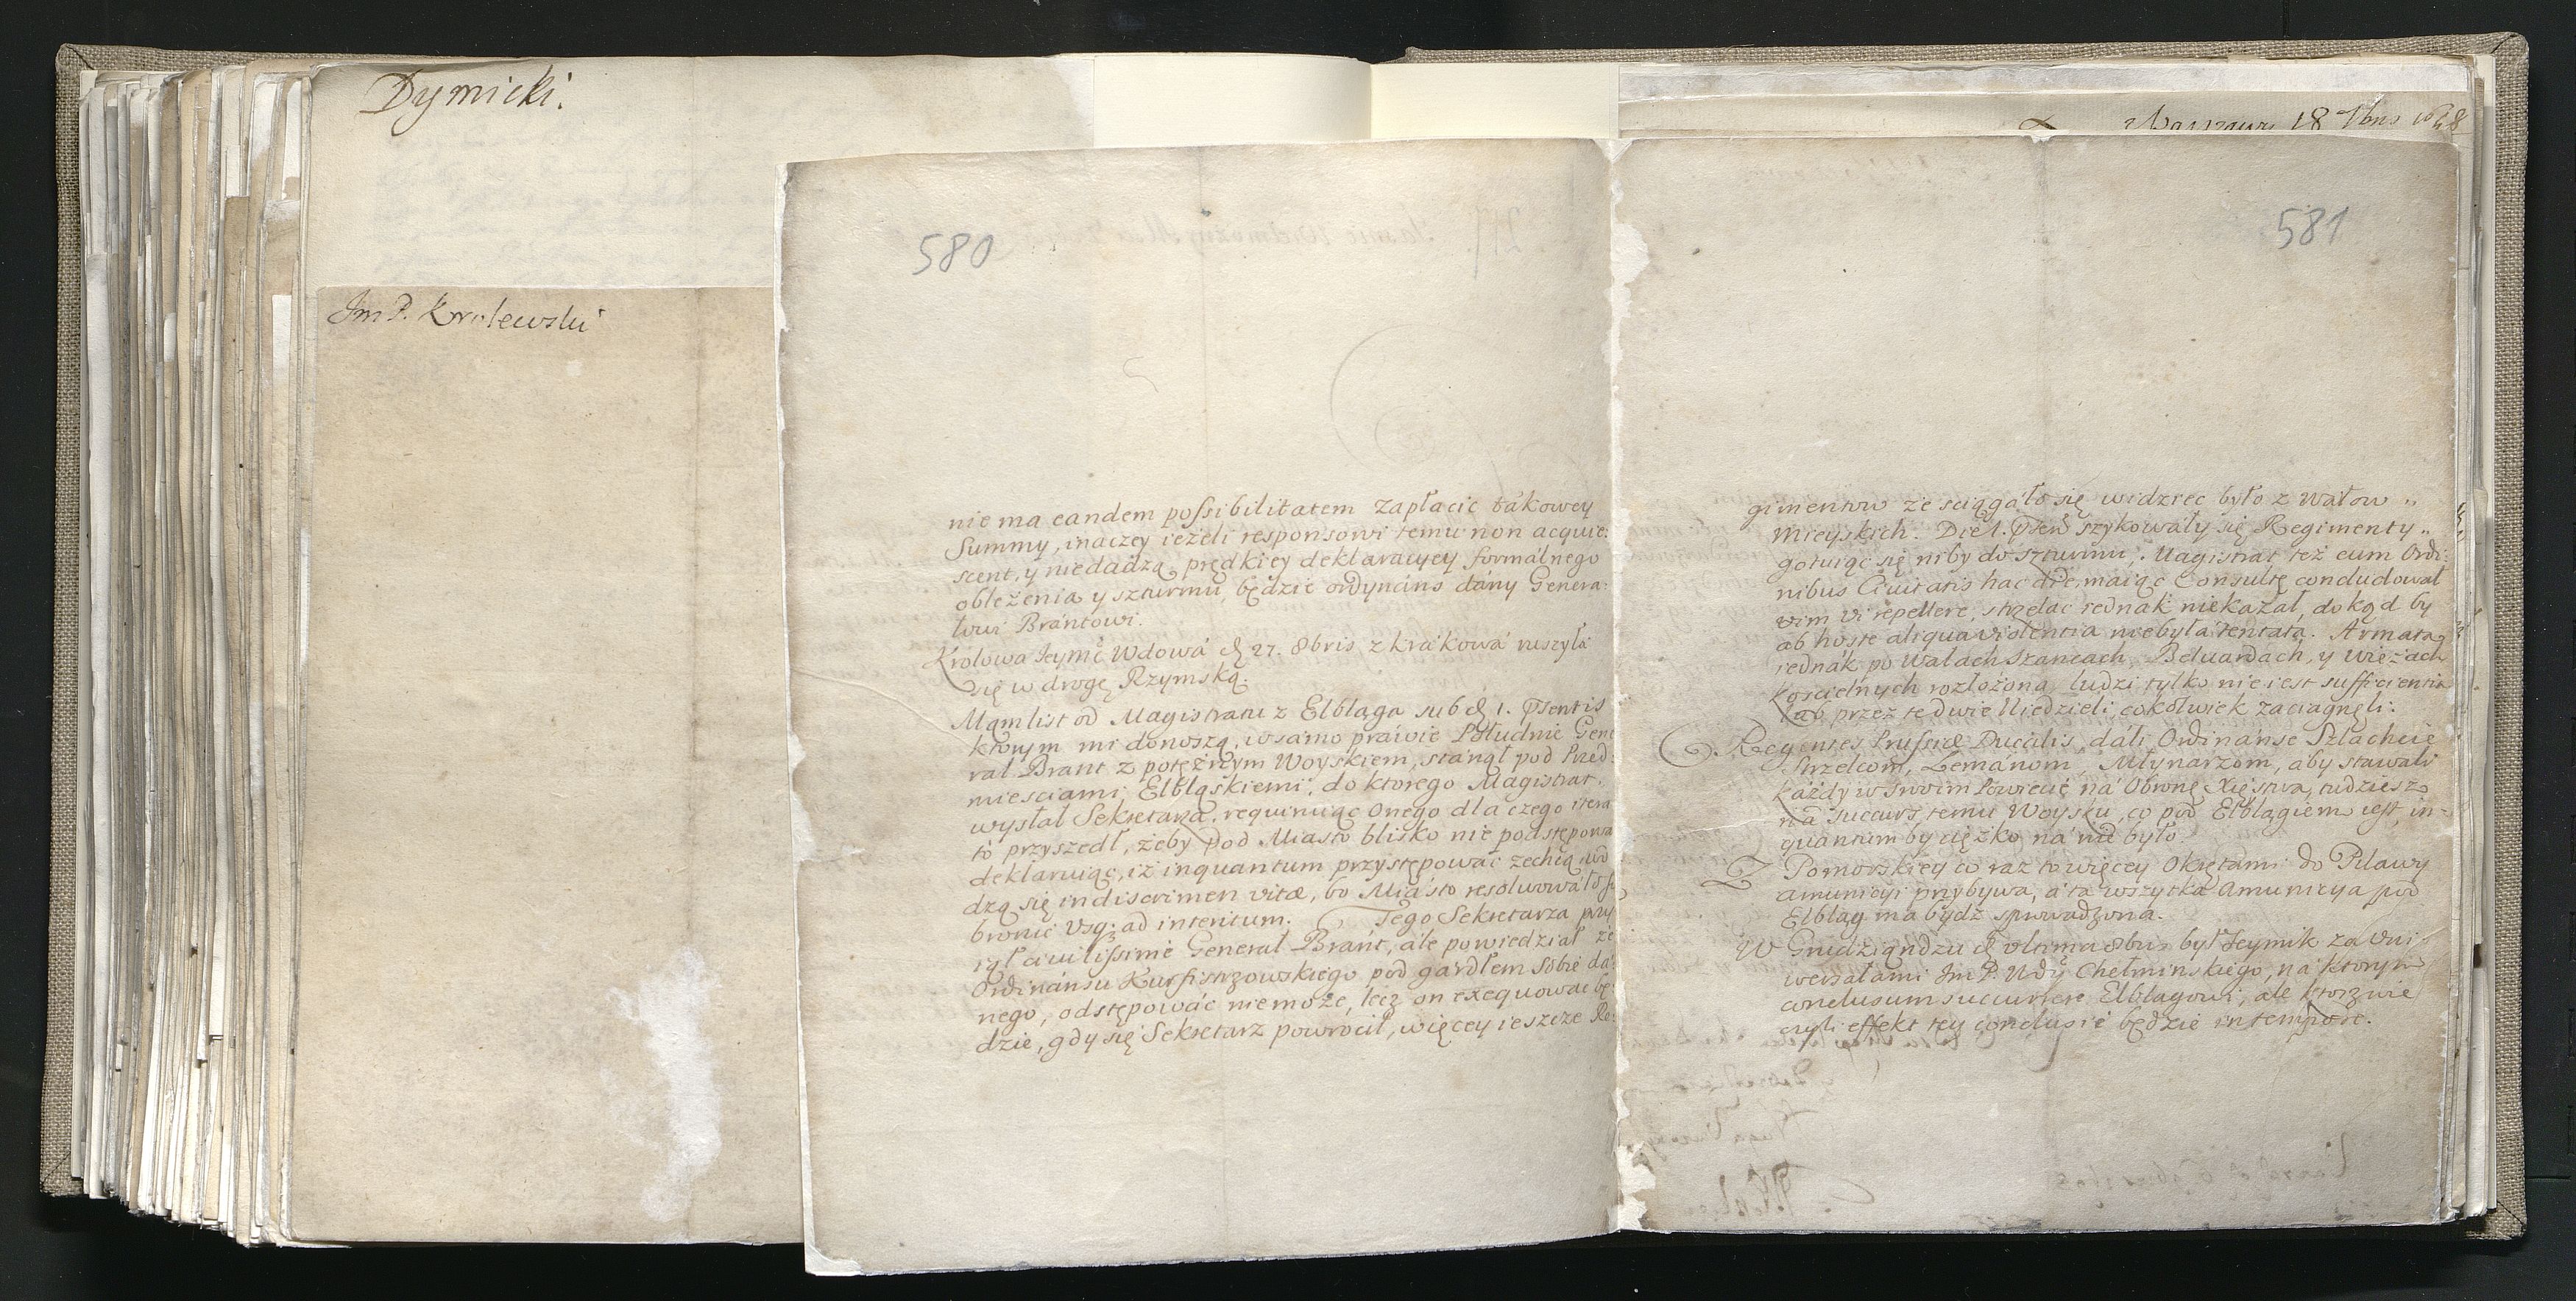 Dymicki.
Jm P. Krolewski
580
nie ma eandem possibilitatem zapłacic tákowey
Summy, inaczey ieżeli responsowi temu non acquie:
scent, y niedádzą prędkiey deklaracyey formálnego
oblężenia y szturmu, będzie ordynáns dány Genera:
łowi Brántowi.
Krolowa Jeymć Wdowá d 27. 8bris z krákowá ruszyłá
się w drogę Rzymską.
Mam list od Magistratu z Elbląga sub d 1. Psentis
ktorym mi donoszą, w sámo práwie Południe Gene
rał Brant z potężnym Woyskiem, stánął pod Przed:
miesciámi Elbląskiemi, do ktorego Magistrat.
wysłał Sekretarza, requiruiąc onego dla czego itera
to przyszedł, żeby pod Miasto blisko nie podstępowa
deklaruiąc, iż inquantum przystępowáć zechcą, wd
dzą się in discrimen vitæ, bo Miásto resolwowáło s
bronić vsq; ad interitum. Tego Sekretarza przy
iął civilissimè Generał Bránt, ále powiedział że
Ordinánsu Kurfistrzowskiego pod gárdłem sobie dá:
nego, odstępowáć nie może, lecz on exequowác bę:
dzie, gdy się Sekretarz powrocił, więcey ieszcze Re:
Warszawy 18 7bris
581
gimentow że sciągáło się widziec było z Wałow
Mieyskich. Die 1. Psen szykowáły się Regimenty
gotuiąc się niby do szturmu, Magistrat też cum Ordi:
nibus Civitatis hac die, maiąc Consultę concludował
vim vi repellere, strzelać iednák niekazał, dokąd by
ab hoste aliqua violentia niebyłá tentata. Armata
iednák po Wałach Szańcach, Beluardách, y Wieżách
Koscielnych rozłożona, ludzi tylko nie iest sufficientia
lub przez te dwie Niedzieli cokolwiek zaciągnęli.
Regentes Prussiæ Ducalis, dáli Ordinánse Szlachcie
Strzelcom, Lemánom, Młynarzom, áby stawáli
każdy w swoim Powiecie ná Obronę Xięstwa, tudziesz
ná succurs temu Woysku, co pod Elblągiem iest, in=
quantum by ciężko ná nie było.
Z Pomorskiey co raz to więcey Okrętámi do Pilawy
amunicyi przybywa, á tá wszytka Amunicya pod
Elbląg ma bydź sprowadzona.
W Grudziądzu d vltima 8bris był Seymik za Vni:
wersałami Jm P. Wdy Chełminskiego, ná ktorym
conclusum succurrere Elblągowi, ále
effekt tey conclusiey będzie in tempore.